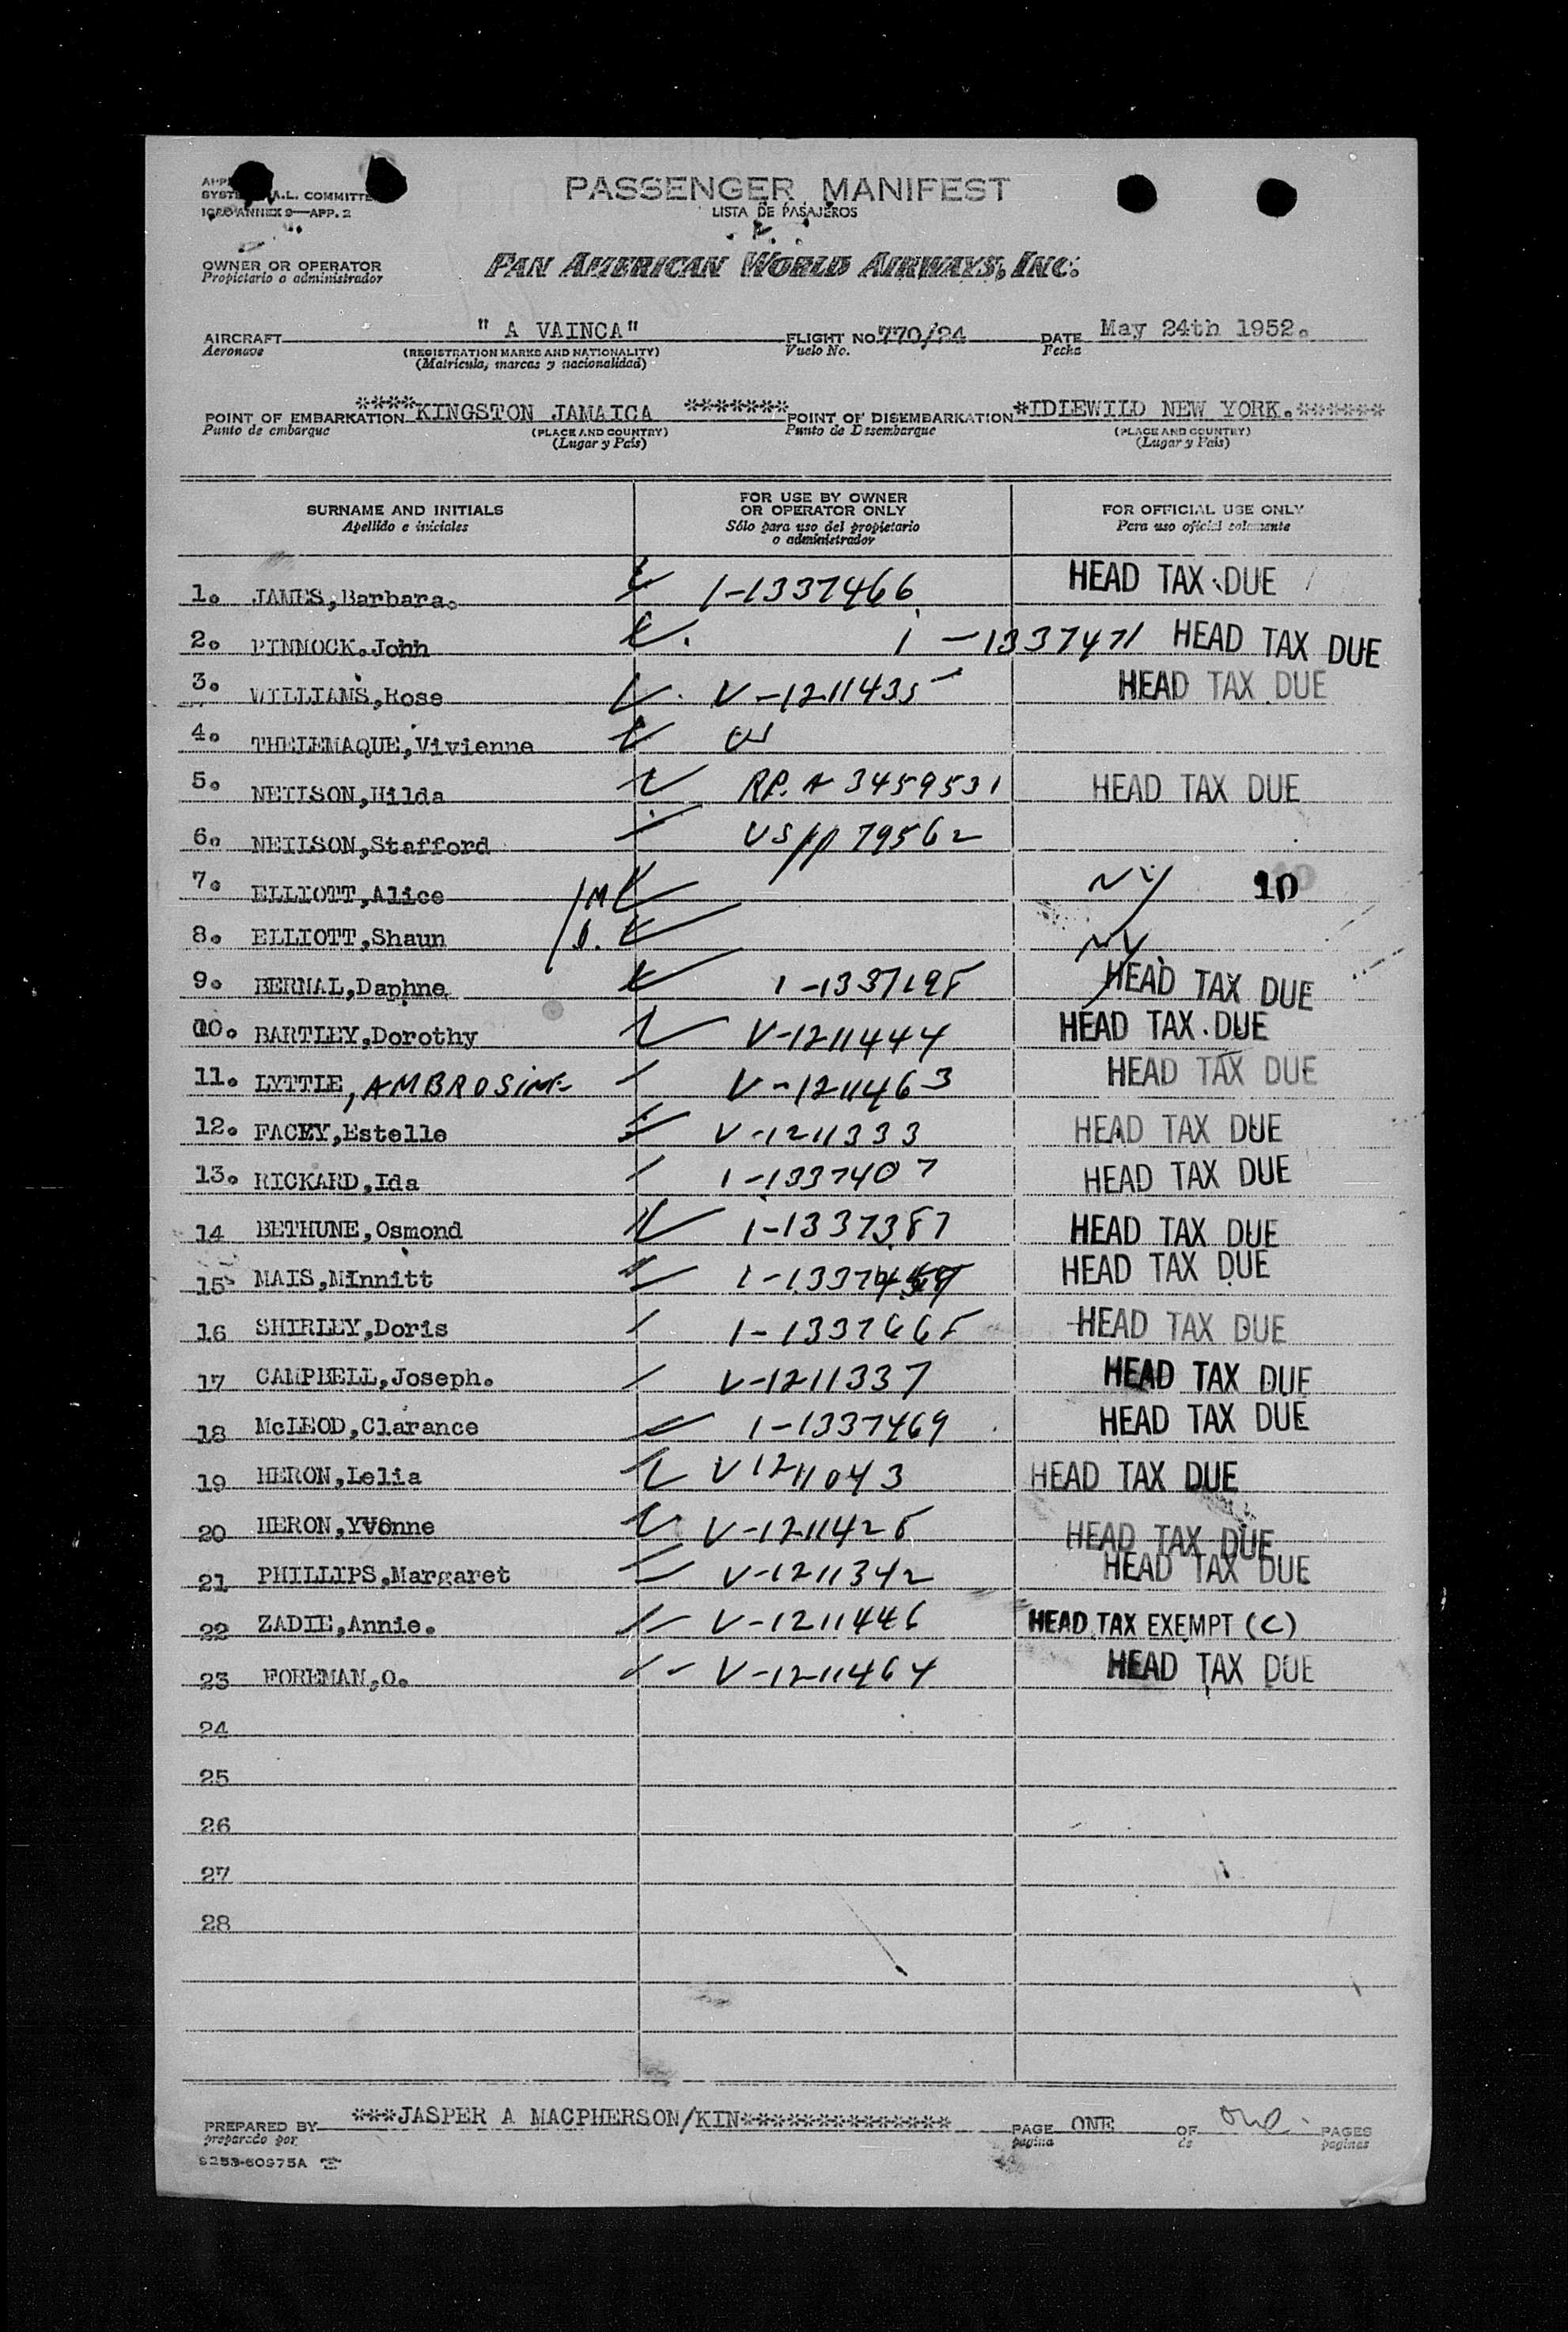 PASSENGER MANIFEST
A.L. COMMITTEE
ICAO ANNEX 9—APP. 2
LISTA DE PASAJEROS
OWNER OR OPERATOR
Propietario o administrador
PAN AMERICAN WORLD AIRWAYS, INC.
AIRCRAFT " A VAINCA" FLIGHT NO. 770/24 DATE May 24th 1952.
Aeronave (REGISTRATION MARKS AND NATIONALITY) Vuelo No. Fecha
(Matrícula, marcas y nacionalidad)
POINT OF EMBARKATION ****KINGSTON JAMAICA ******* POINT OF DISEMBARKATION *IDLEWILD NEW YORK.******
Punto de embarque (PLACE AND COUNTRY) Punto de Desembarque (PLACE AND COUNTRY)
(Lugar y País) (Lugar y País)
SURNAME AND INITIALS FOR USE BY OWNER OR OPERATOR ONLY FOR OFFICIAL USE ONLY
Apellido e iniciales Sólo para uso del propietario o administrador Para uso oficial solamente
1. JAMES,Barbara. 1-1337466 HEAD TAX DUE
2. PINNOCK.John 1-1337471 HEAD TAX DUE
3. WILLIAMS,Rose V-1211435 HEAD TAX DUE
4. THELEMAQUE,Vivienne
5. NEILSON,Hilda RP. A 3459531 HEAD TAX DUE
6. NEILSON,Stafford US pp 79562
7. ELLIOTT,Alice /M NY 10
8. ELLIOTT,Shaun NY
9. BERNAL,Daphne 1-1337198 HEAD TAX DUE
10. BARTLEY,Dorothy V-1211444 HEAD TAX DUE
11. LYTTLE, AMBROSINE V-1211463 HEAD TAX DUE
12. FACEY,Estelle V-1211333 HEAD TAX DUE
13. RICKARD,Ida 1-1337407 HEAD TAX DUE
14 BETHUNE,Osmond 1-1337387 HEAD TAX DUE
15 MAIS,MInnitt HEAD TAX DUE
16 SHIRLEY,Doris HEAD TAX DUE
17 CAMPBELL,Joseph. V-1211337 HEAD TAX DUE
18 McLEOD,Clarance 1-1337469 HEAD TAX DUE
19 HERON,Lelia V 1211043 HEAD TAX DUE
20 HERON,YVonne V-1211428 HEAD TAX DUE
21 PHILLIPS,Margaret V-1211342 HEAD TAX DUE
22 ZADIE,Annie. V-1211446 HEAD TAX EXEMPT (C)
23 FOREMAN,O. V-1211464 HEAD TAX DUE
24
25
26
27
28
PREPARED BY ***JASPER A MACPHERSON/KIN************** PAGE ONE OF one PAGES
preparado por pagina de paginas
9253-60975A